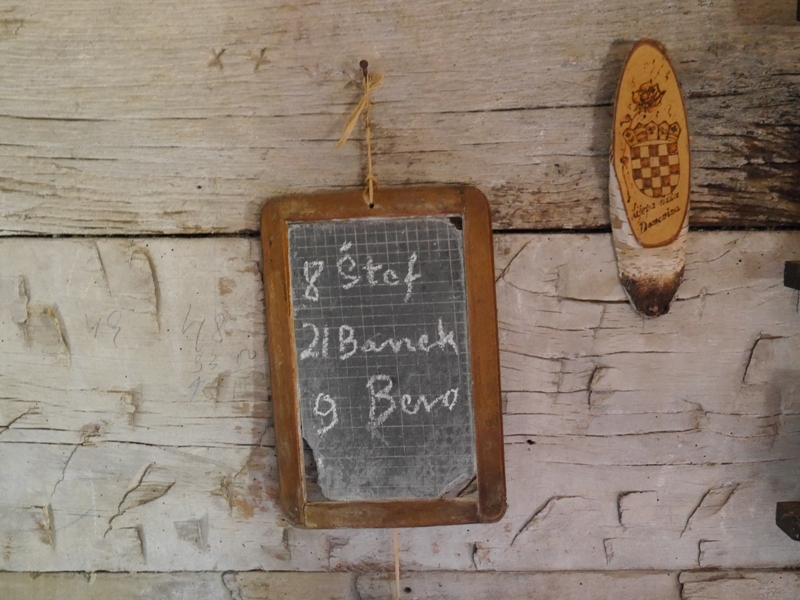 8 Štef
21 Banek
9 Bevo
Lijepa naša
Domovina